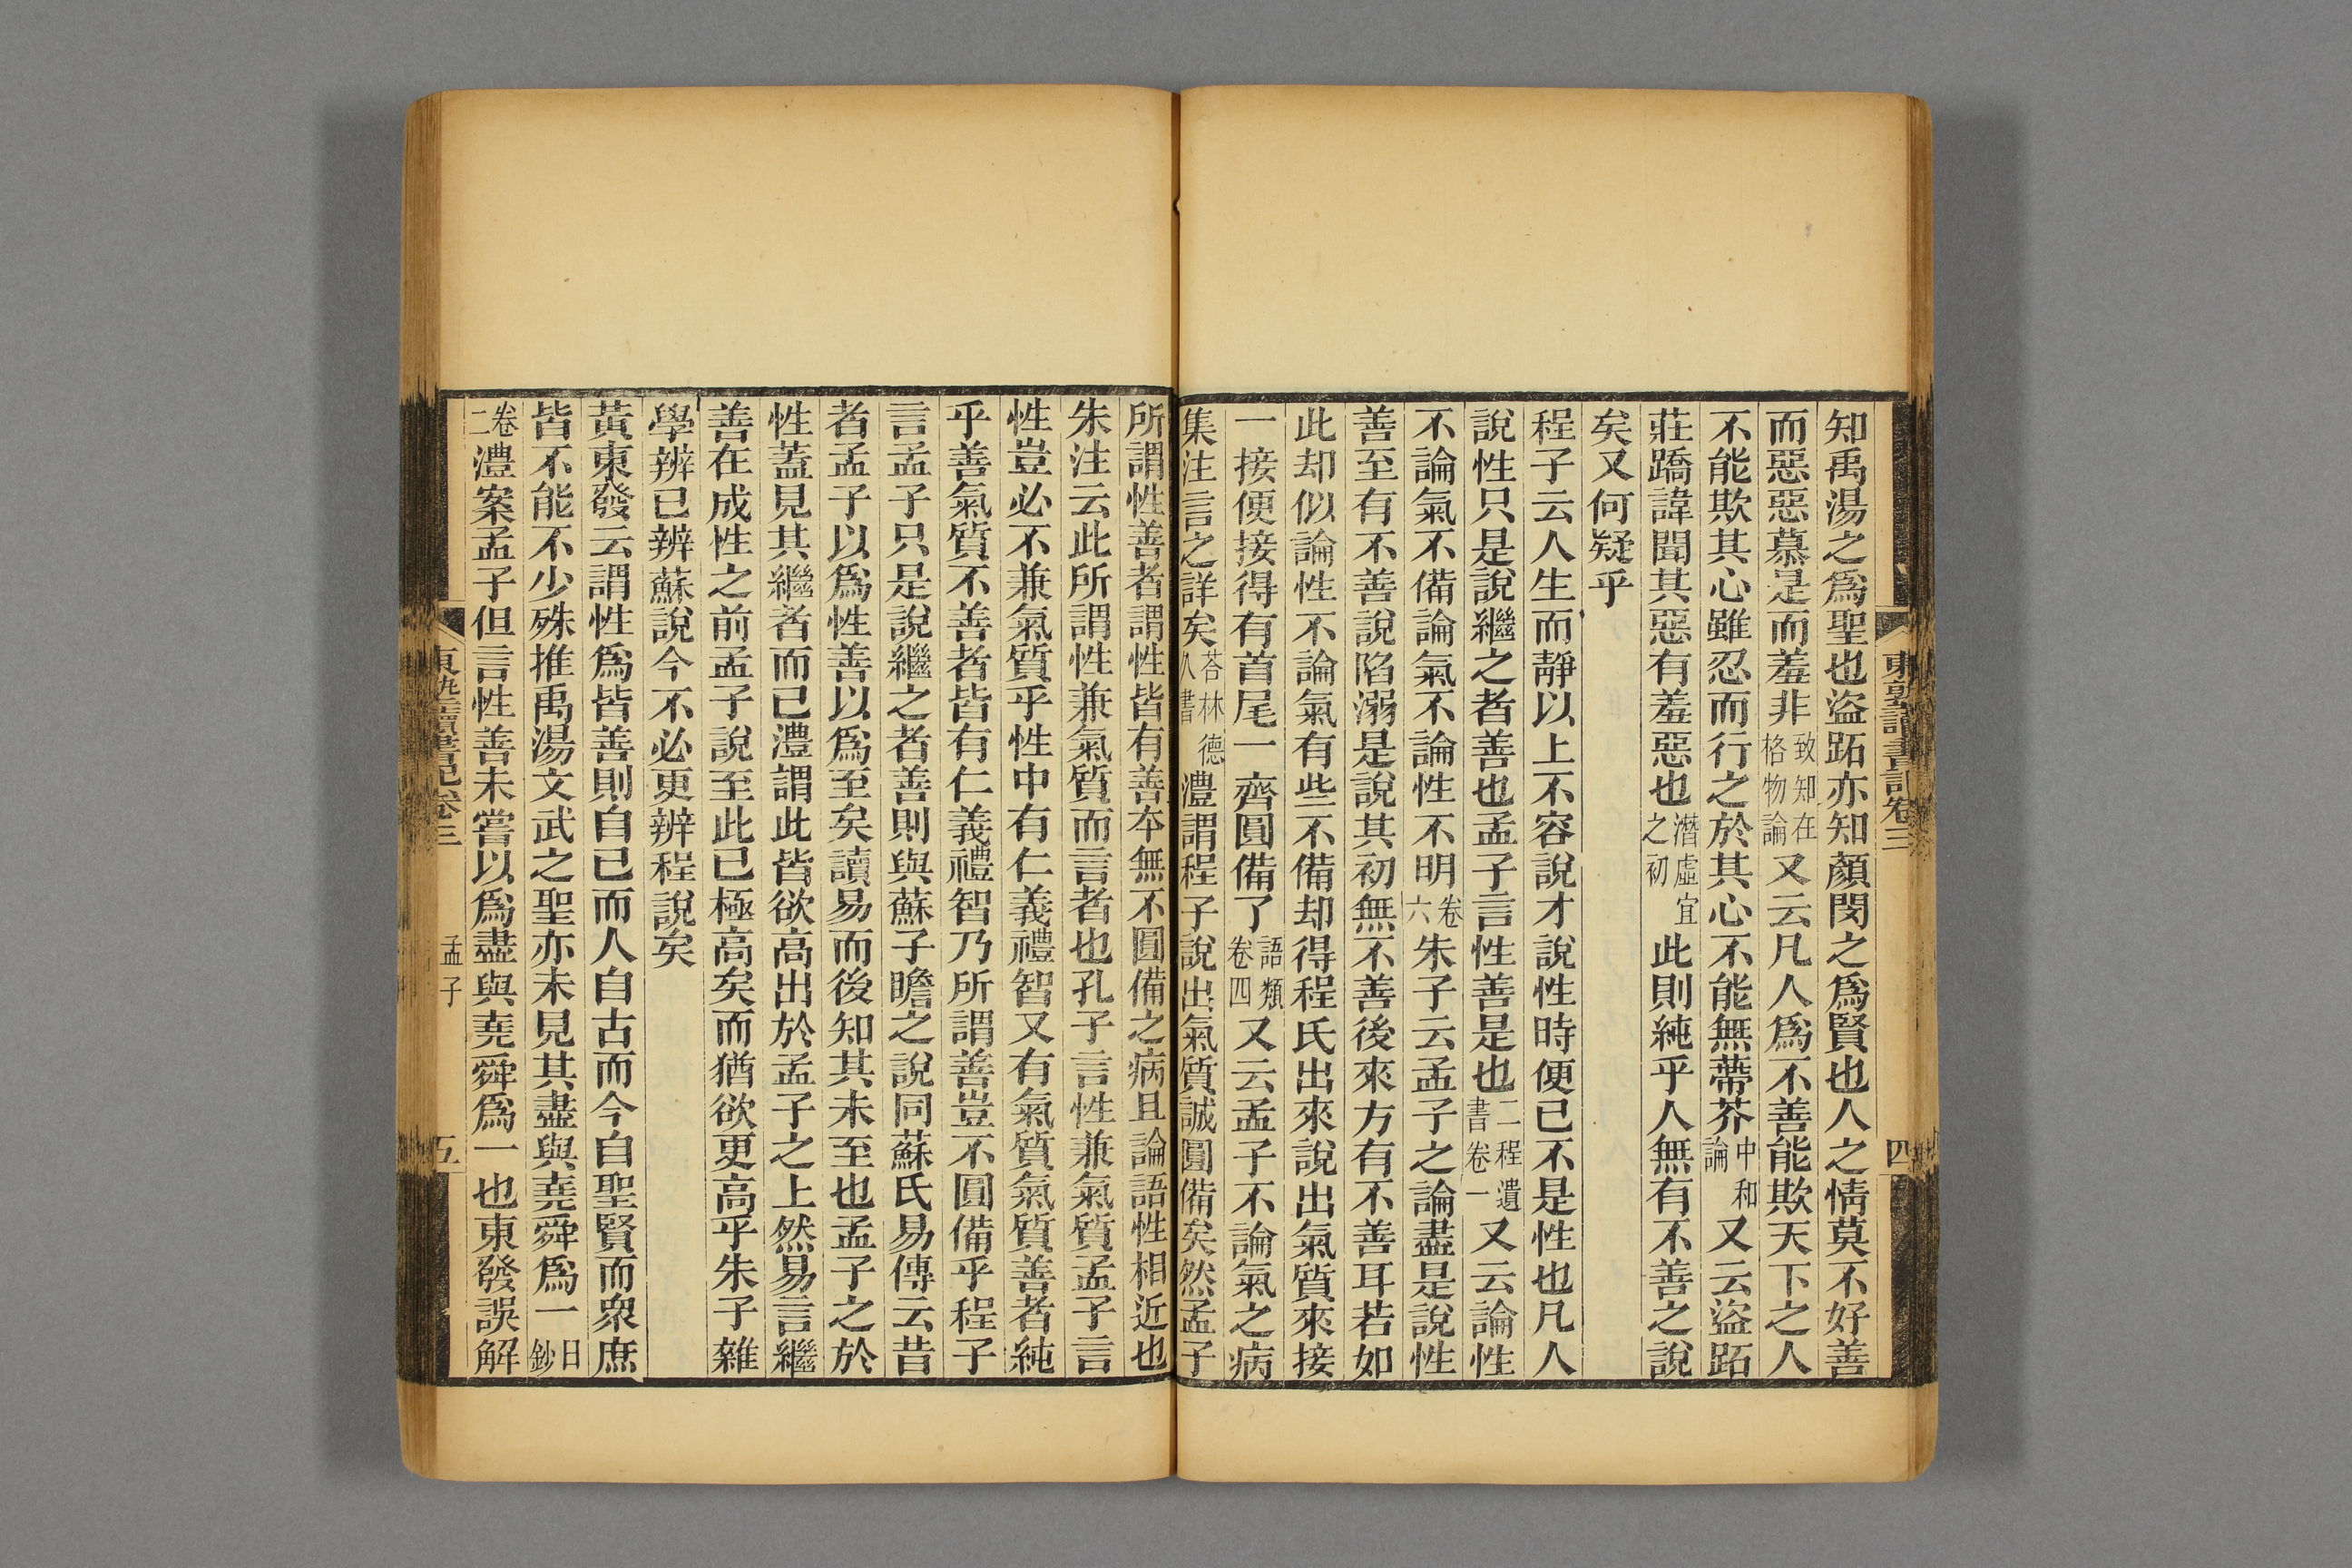 東塾讀書記卷三
四
知禹湯之爲聖也盜跖亦知顏閔之爲賢也人之情莫不好善
而惡惡慕是而羞非致知在格物論又云凡人爲不善能欺天下之人
不能欺其心雖忍而行之於其心不能無蔕芥中和論又云盜跖
莊蹻諱聞其惡有羞惡也潛虛宜之初此則純乎人無有不善之說
矣又何疑乎
程子云人生而靜以上不容說才說性時便已不是性也凡人
說性只是說繼之者善也孟子言性善是也二程遺書卷一又云論性
不論氣不備論氣不論性不明卷六朱子云孟子之論盡是說性
善至有不善說陷溺是說其初無不善後來方有不善耳若如
此却似論性不論氣有些不備却得程氏出來說出氣質來接
一接便接得有首尾一齊圓備了語類卷四又云孟子不論氣之病
集注言之詳矣荅林德久書澧謂程子說出氣質誠圓備矣然孟子
所謂性善者謂性皆有善本無不圓備之病且論語性相近也
朱注云此所謂性兼氣質而言者也孔子言性兼氣質孟子言
性豈必不兼氣質乎性中有仁義禮智又有氣質氣質善者純
乎善氣質不善者皆有仁義禮智乃所謂善豈不圓備乎程子
言孟子只是說繼之者善則與蘇子瞻之說同蘇氏易傳云昔
者孟子以爲性善以爲至矣讀易而後知其未至也孟子之於
性蓋見其繼者而已澧謂此皆欲高出於孟子之上然易言繼
善在成性之前孟子說至此已極高矣而猶欲更高乎朱子雜
學辨已辨蘇說今不必更辨程說矣
黃東發云謂性爲皆善則自已而人自古而今自聖賢而衆庶
皆不能不少殊推禹湯文武之聖亦未見其盡與堯舜爲一日鈔
卷二澧案孟子但言性善未嘗以爲盡與堯舜爲一也東發誤解
東塾讀書記卷三
孟子
五